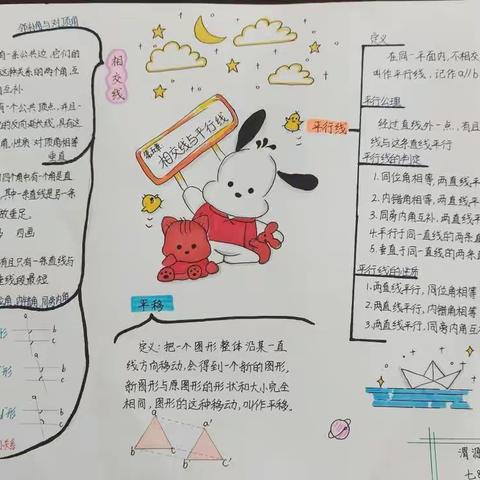 邻补角与对顶角
有一条公共边，它们的
这种关系的两个角，互
角互补
有一个公共顶点，并且一
的反向延长线，具有这
角，性质 对顶角相等
垂直
四个角中有一个角是直
其中一条直线是另一条
做垂足。
四画
有且只有一条直线与
垂线段最短
位角，内错角，同旁内角
形
a
b
c
形
a
b
c
形
a
b
c
相交线
第五章
相交线与平行线
平移
定义：把一个图形整体沿某一直
线方向移动，会得到一个新的图形。
新图形与原图形的形状和大小完全
相同，图形的这种移动，叫作平移。
a
a'
b
c
b'
c'
平行线
定义
在同一平面内，不相交
叫作平行线，记作a//b
平行公理
经过直线外一点，有且
线与这条直线平行
平行线的判定
1.同位角相等，两直线平
2.内错角相等，两直线平
3.同旁内角互补，两直线平
4.平行于同一直线的两条直
5.垂直于同一直线的两条直
平行线的性质
1.两直线平行，同位角相等
2.两直线平行，内错角相等
3.两直线平行，同旁内角互
渭源
七8